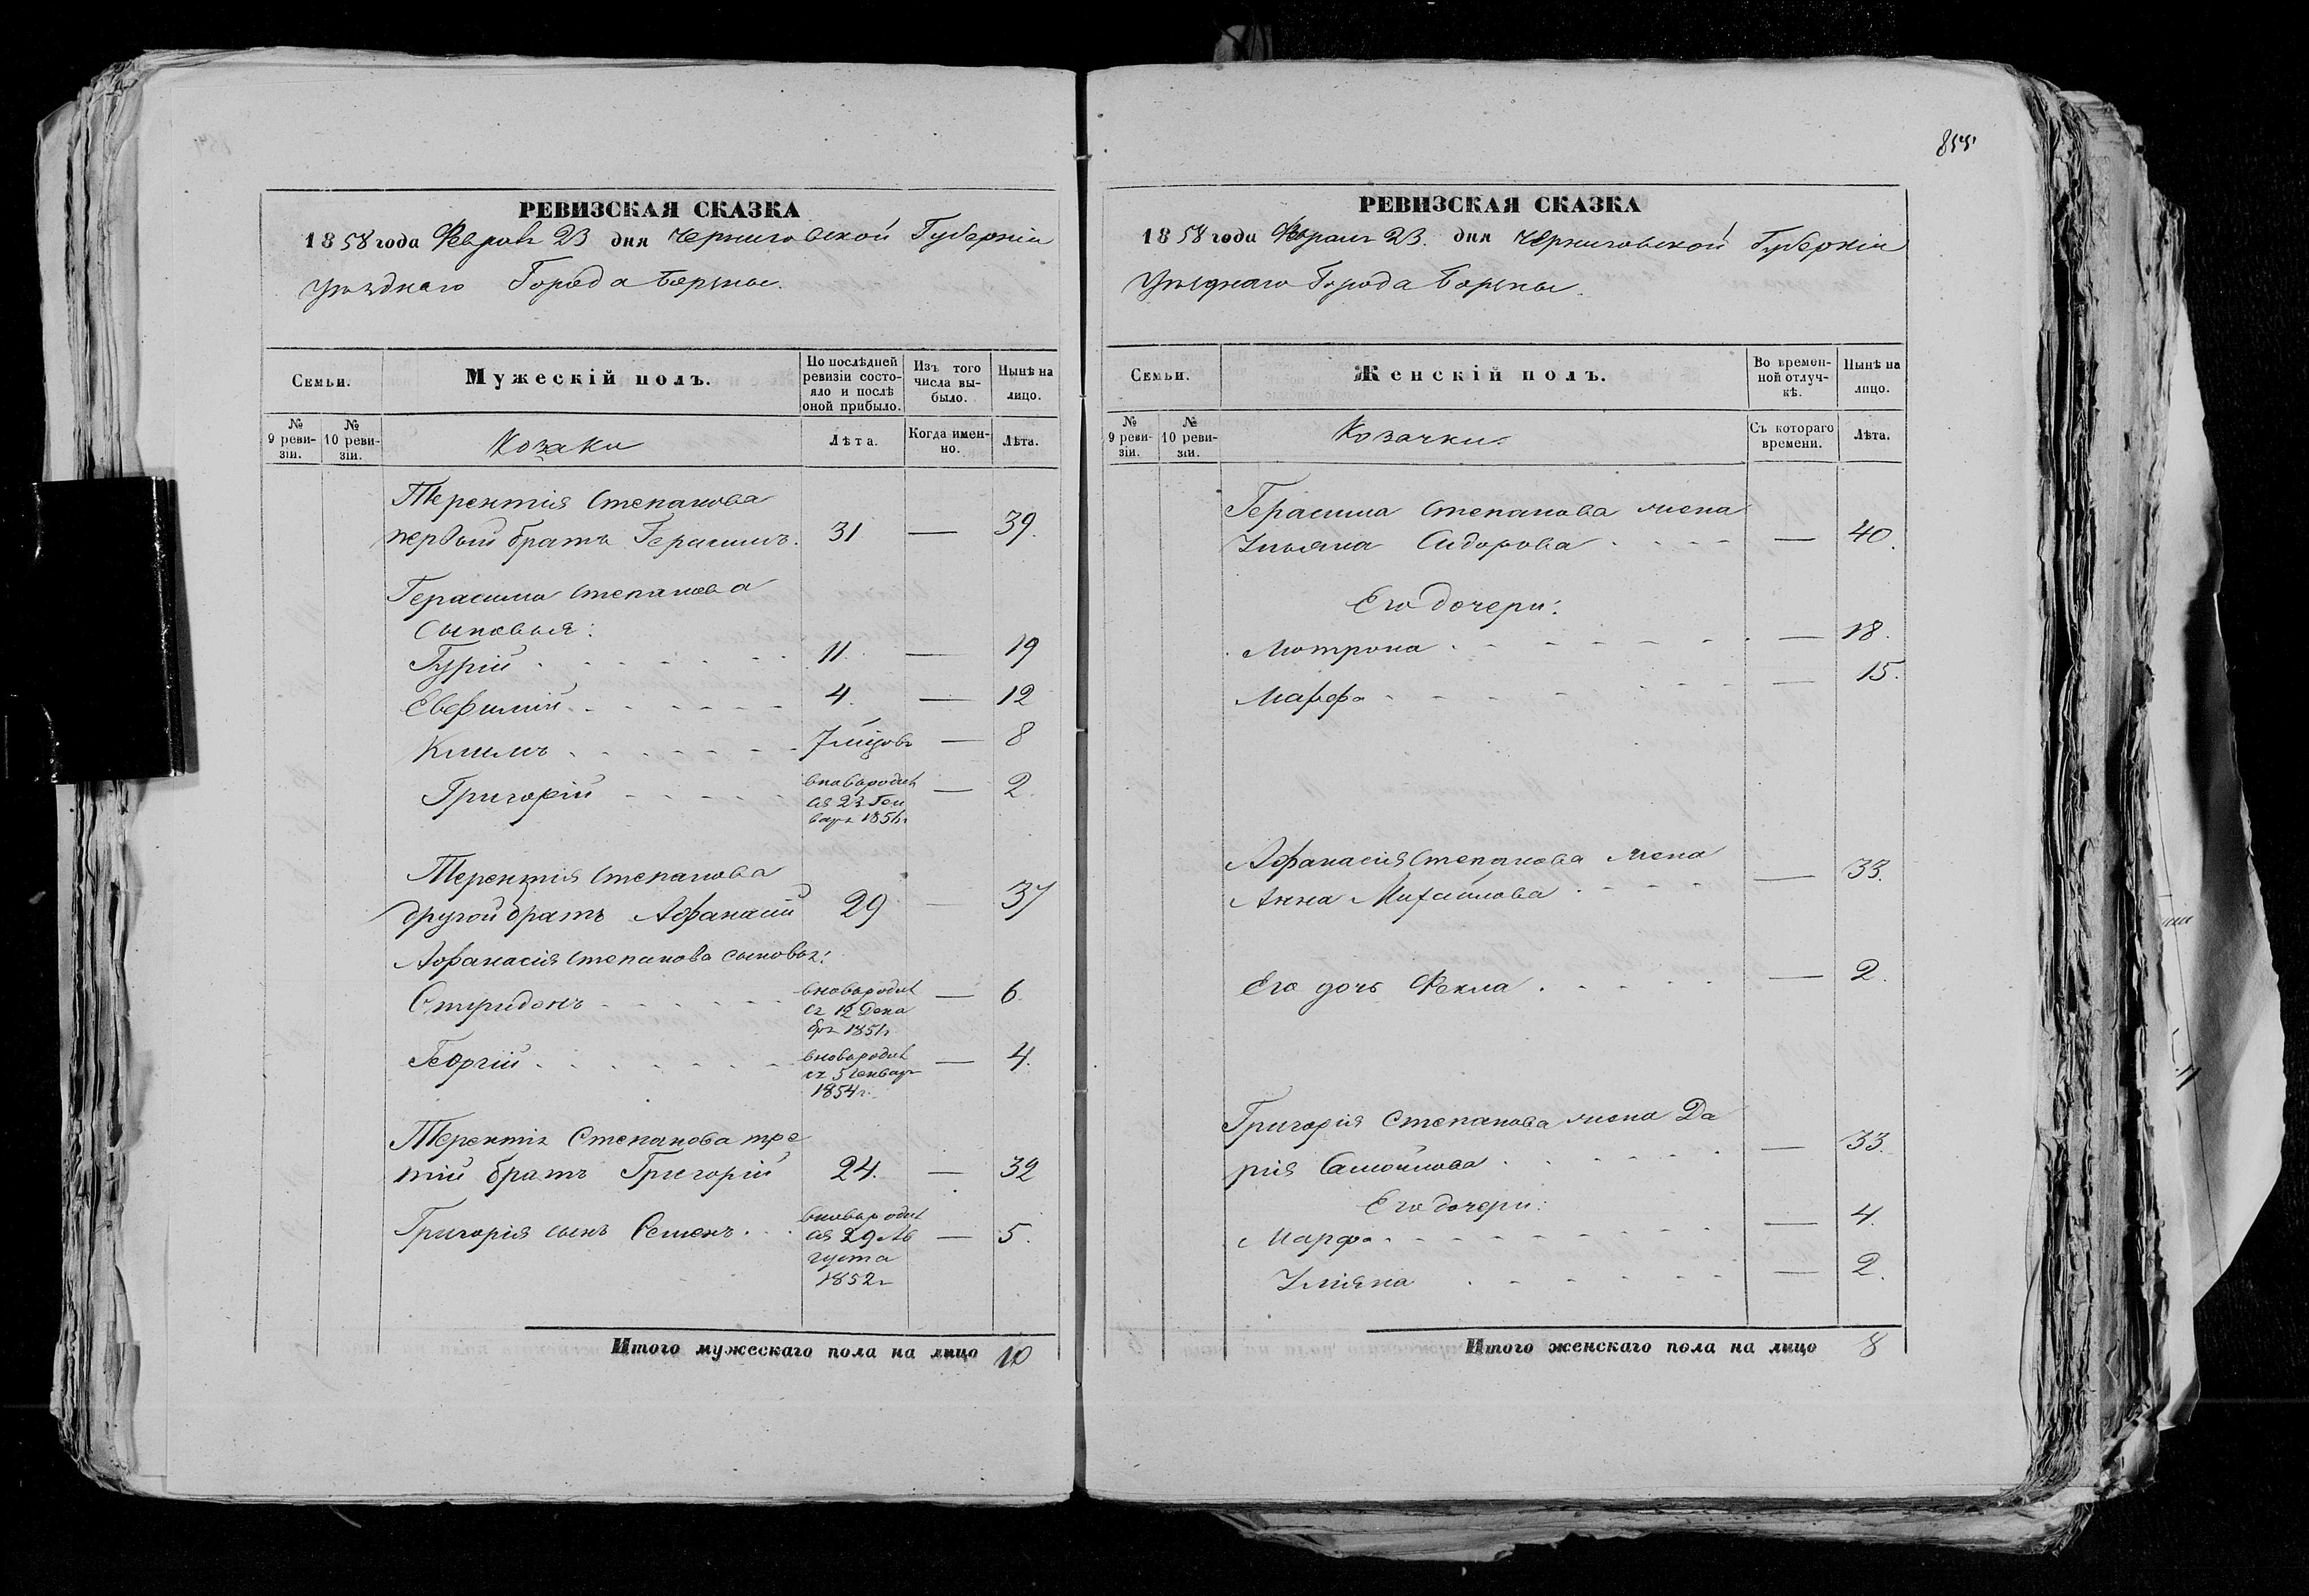 855
РЕВИЗСКАЯ СКАЗКА
1858 года Февраля 23 дня Черниговской Губерніи
уѣзднаго Города Борзны.
Семьи.
Мужескій полъ.
По послѣдней ревизіи состояло и послѣ оной прибыло.
Изъ того числа выбыло.
Нынѣ на лицо.
№ 9 ревизіи.
№ 10 ревизіи.
Козаки
Лѣта.
Когда именно.
Лѣта.
Терентія Степанова
первый братъ Герасимъ. 31 — 39.
Герасима Степанова
Сыновья:
Гурій 11. — 19
Евфимій 4. — 12
Климъ 7 мцовъ — 8
Григорій — 2.
вновьродил
ся 23 Ген
варя 1856г
Терентія Степанова
другой братъ Афанасій 29 — 37
Афанасія Степанова сыновья:
Спиридонъ — 6.
вновьродил
ся 12 Дека
бря 1851г.
Георгій — 4.
вновьродил
ся 5 Генваря
1854г.
Терентія Степанова тре
тій братъ Григорій 24. — 32
Григорія сынъ Семенъ — 5.
вновьродил
ся 29 Ав
густа
1852г
Итого мужескаго пола на лицо 10
РЕВИЗСКАЯ СКАЗКА
1858 года Февраля 23. дня Черниговской Губерніи
Уѣзднаго Города Борзны.
Семьи.
Женскій полъ.
Во временной отлучкѣ.
Нынѣ на лицо.
№ 9 ревизіи.
№ 10 ревизіи.
Козачки.
Съ котораго времени.
Лѣта.
Герасима Степанова жена
Ульяна Сидорова — 40.
Его дочери:
Мотрона — 18.
Марфа — 15.
Афанасія Степанова жена
Анна Михайлова — 33.
Его дочь Фекла — 2.
Григорія Степанова жена Да
рія Самойлова — 33.
Его дочери:
Марфа — 4.
Уліяна — 2.
Итого женскаго пола на лицо 8